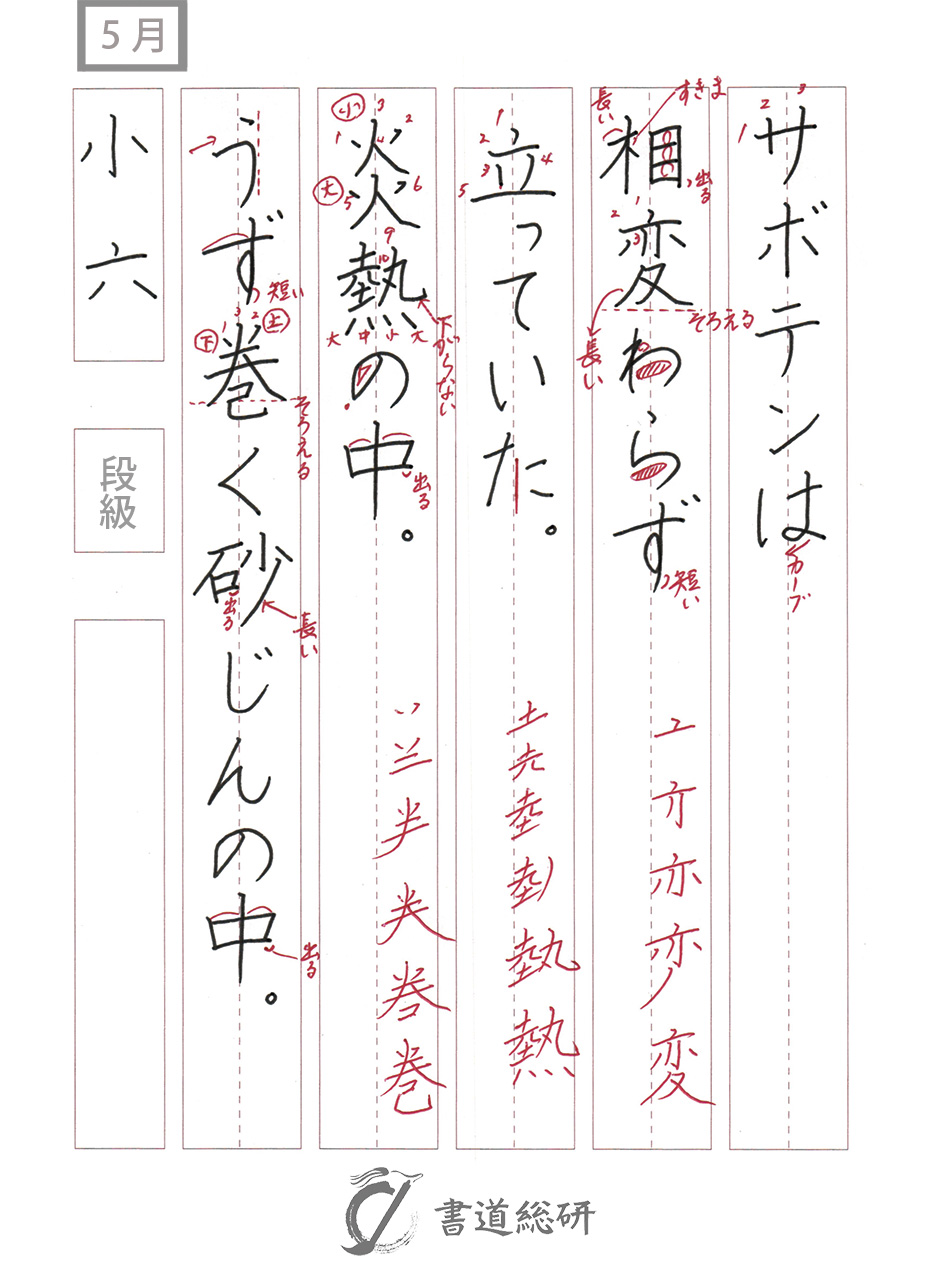 5月
サボテンは
相変わらず
立っていた。
炎熱の中。
うず巻く砂じんの中。
小六
段級
すきま
長い
出る
そろえる
長い
短い
カーブ
小
大
下がらない
大中小大
出る
短い
上
下
そろえる
出る
長い
出る
亠亣亦変
土圥坴埶熱
丷䒑半巻
書道総研